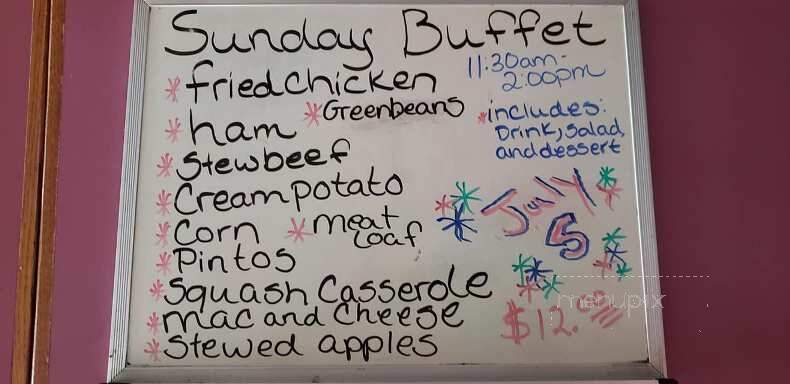 Sunday Buffet
11:30am-
2:00pm
*fried chicken
*Greenbeans
*includes:
Drink, Salad,
and dessert
*ham
*Stewbeef
*Cream potato
*Corn
*meat
loaf
July
5
*Pintos
*Squash Casserole
*mac and cheese
*Stewed apples
$12.00
menupix